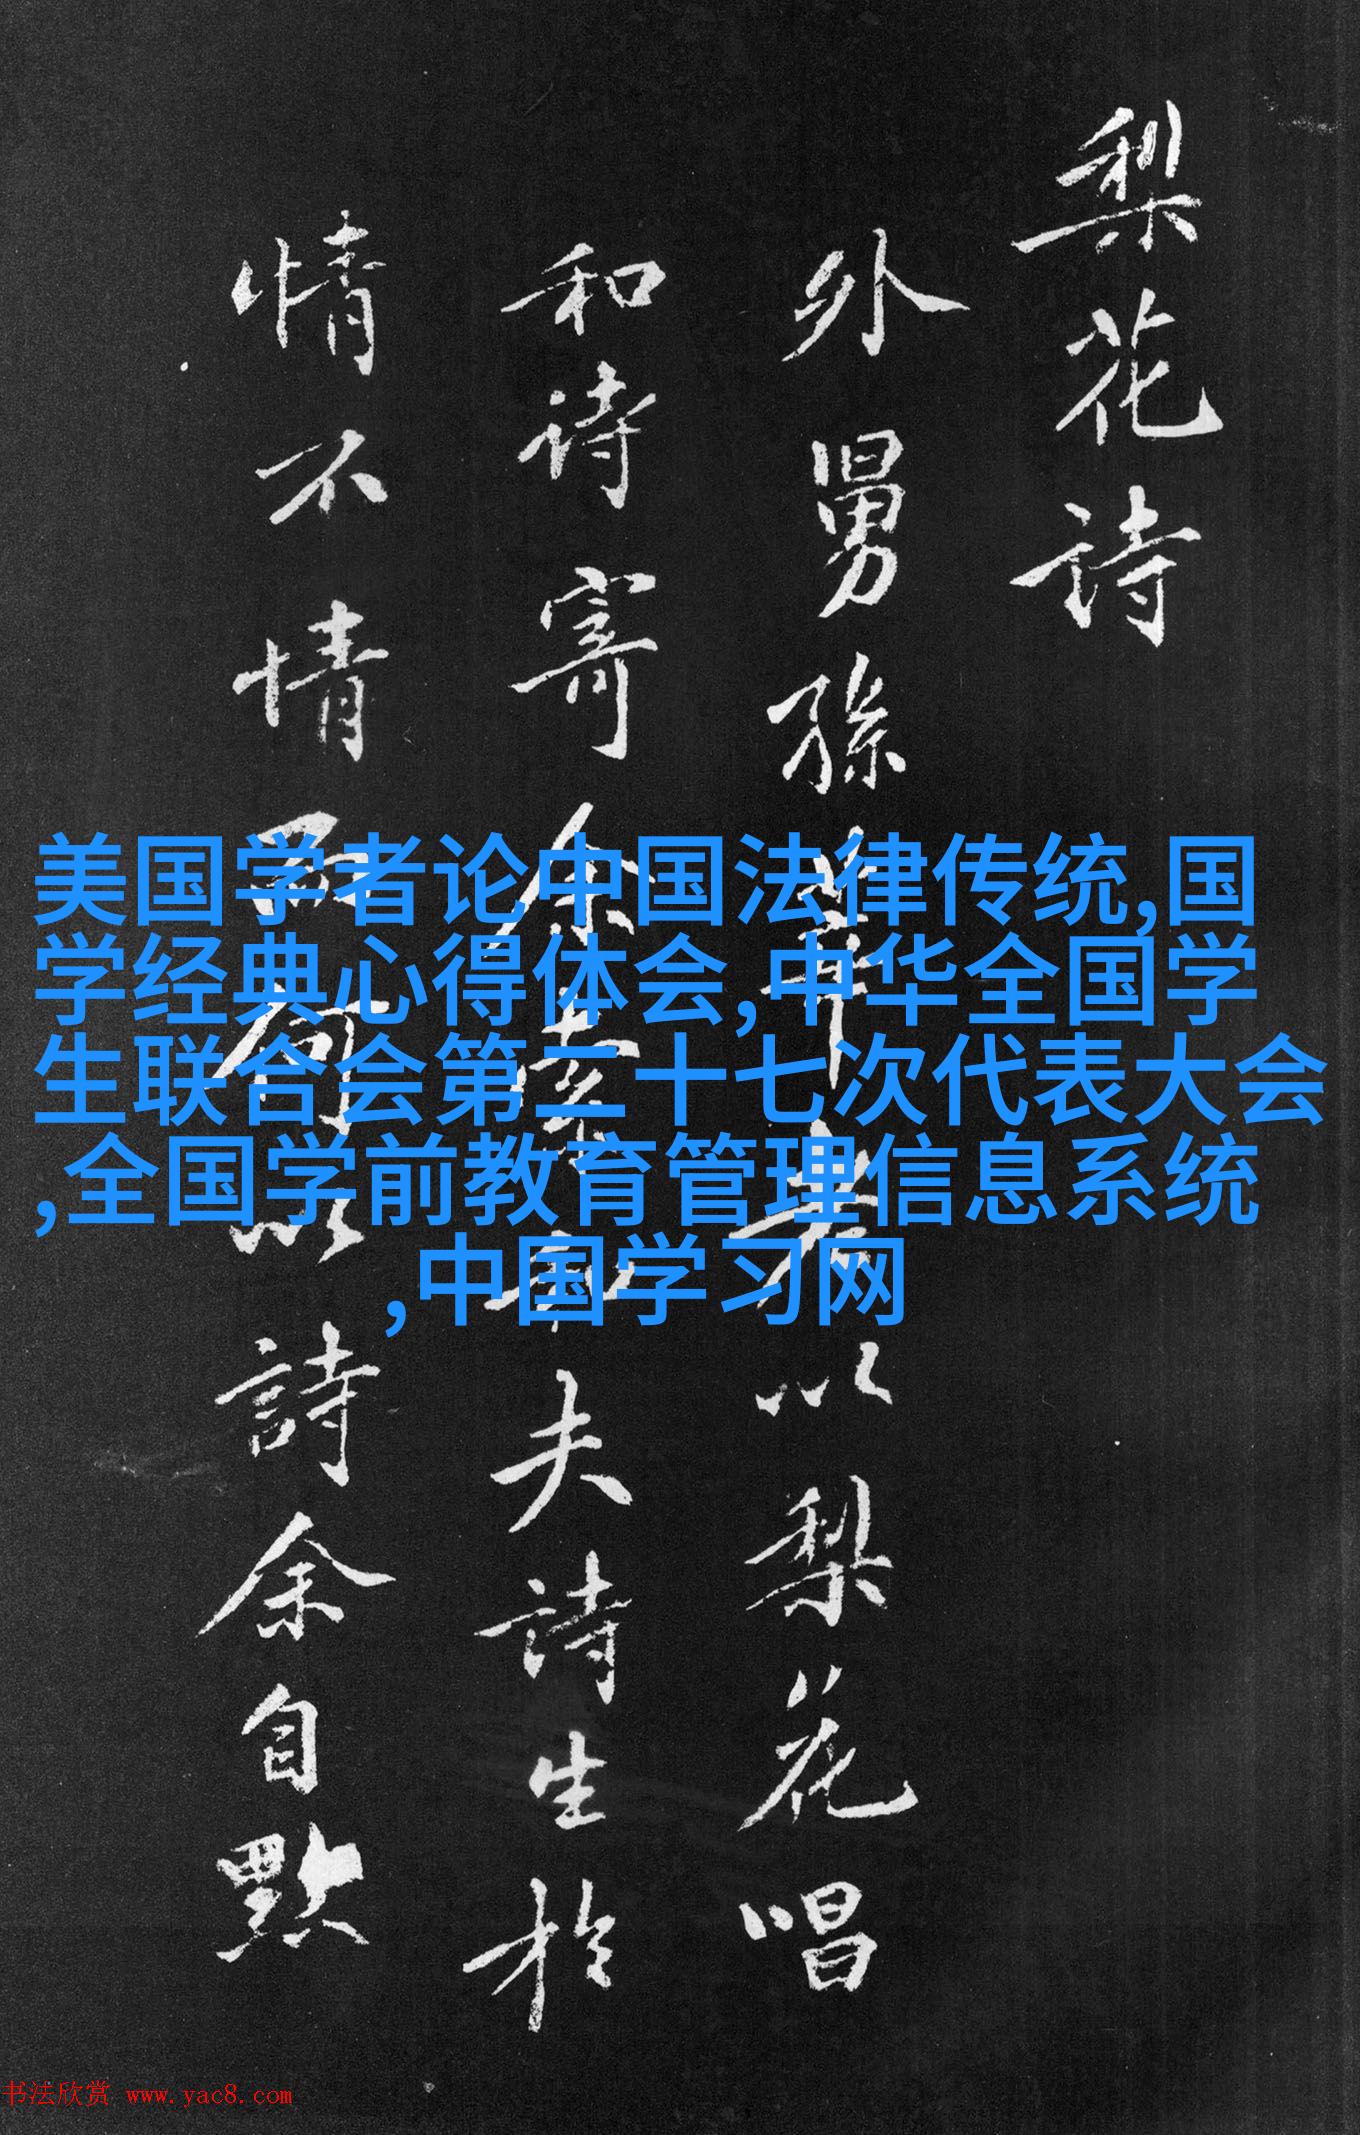 梨花詩
外舅孫莘老以梨花唱
和詩寄余夫詩生於
情不情而何以詩余自點
美国学者论中国法律传统,国
学经典心得体会,中华全国学
生联合会第二十七次代表大会
,全国学前教育管理信息系统
,中国学习网
书法欣赏 www.yac8.com